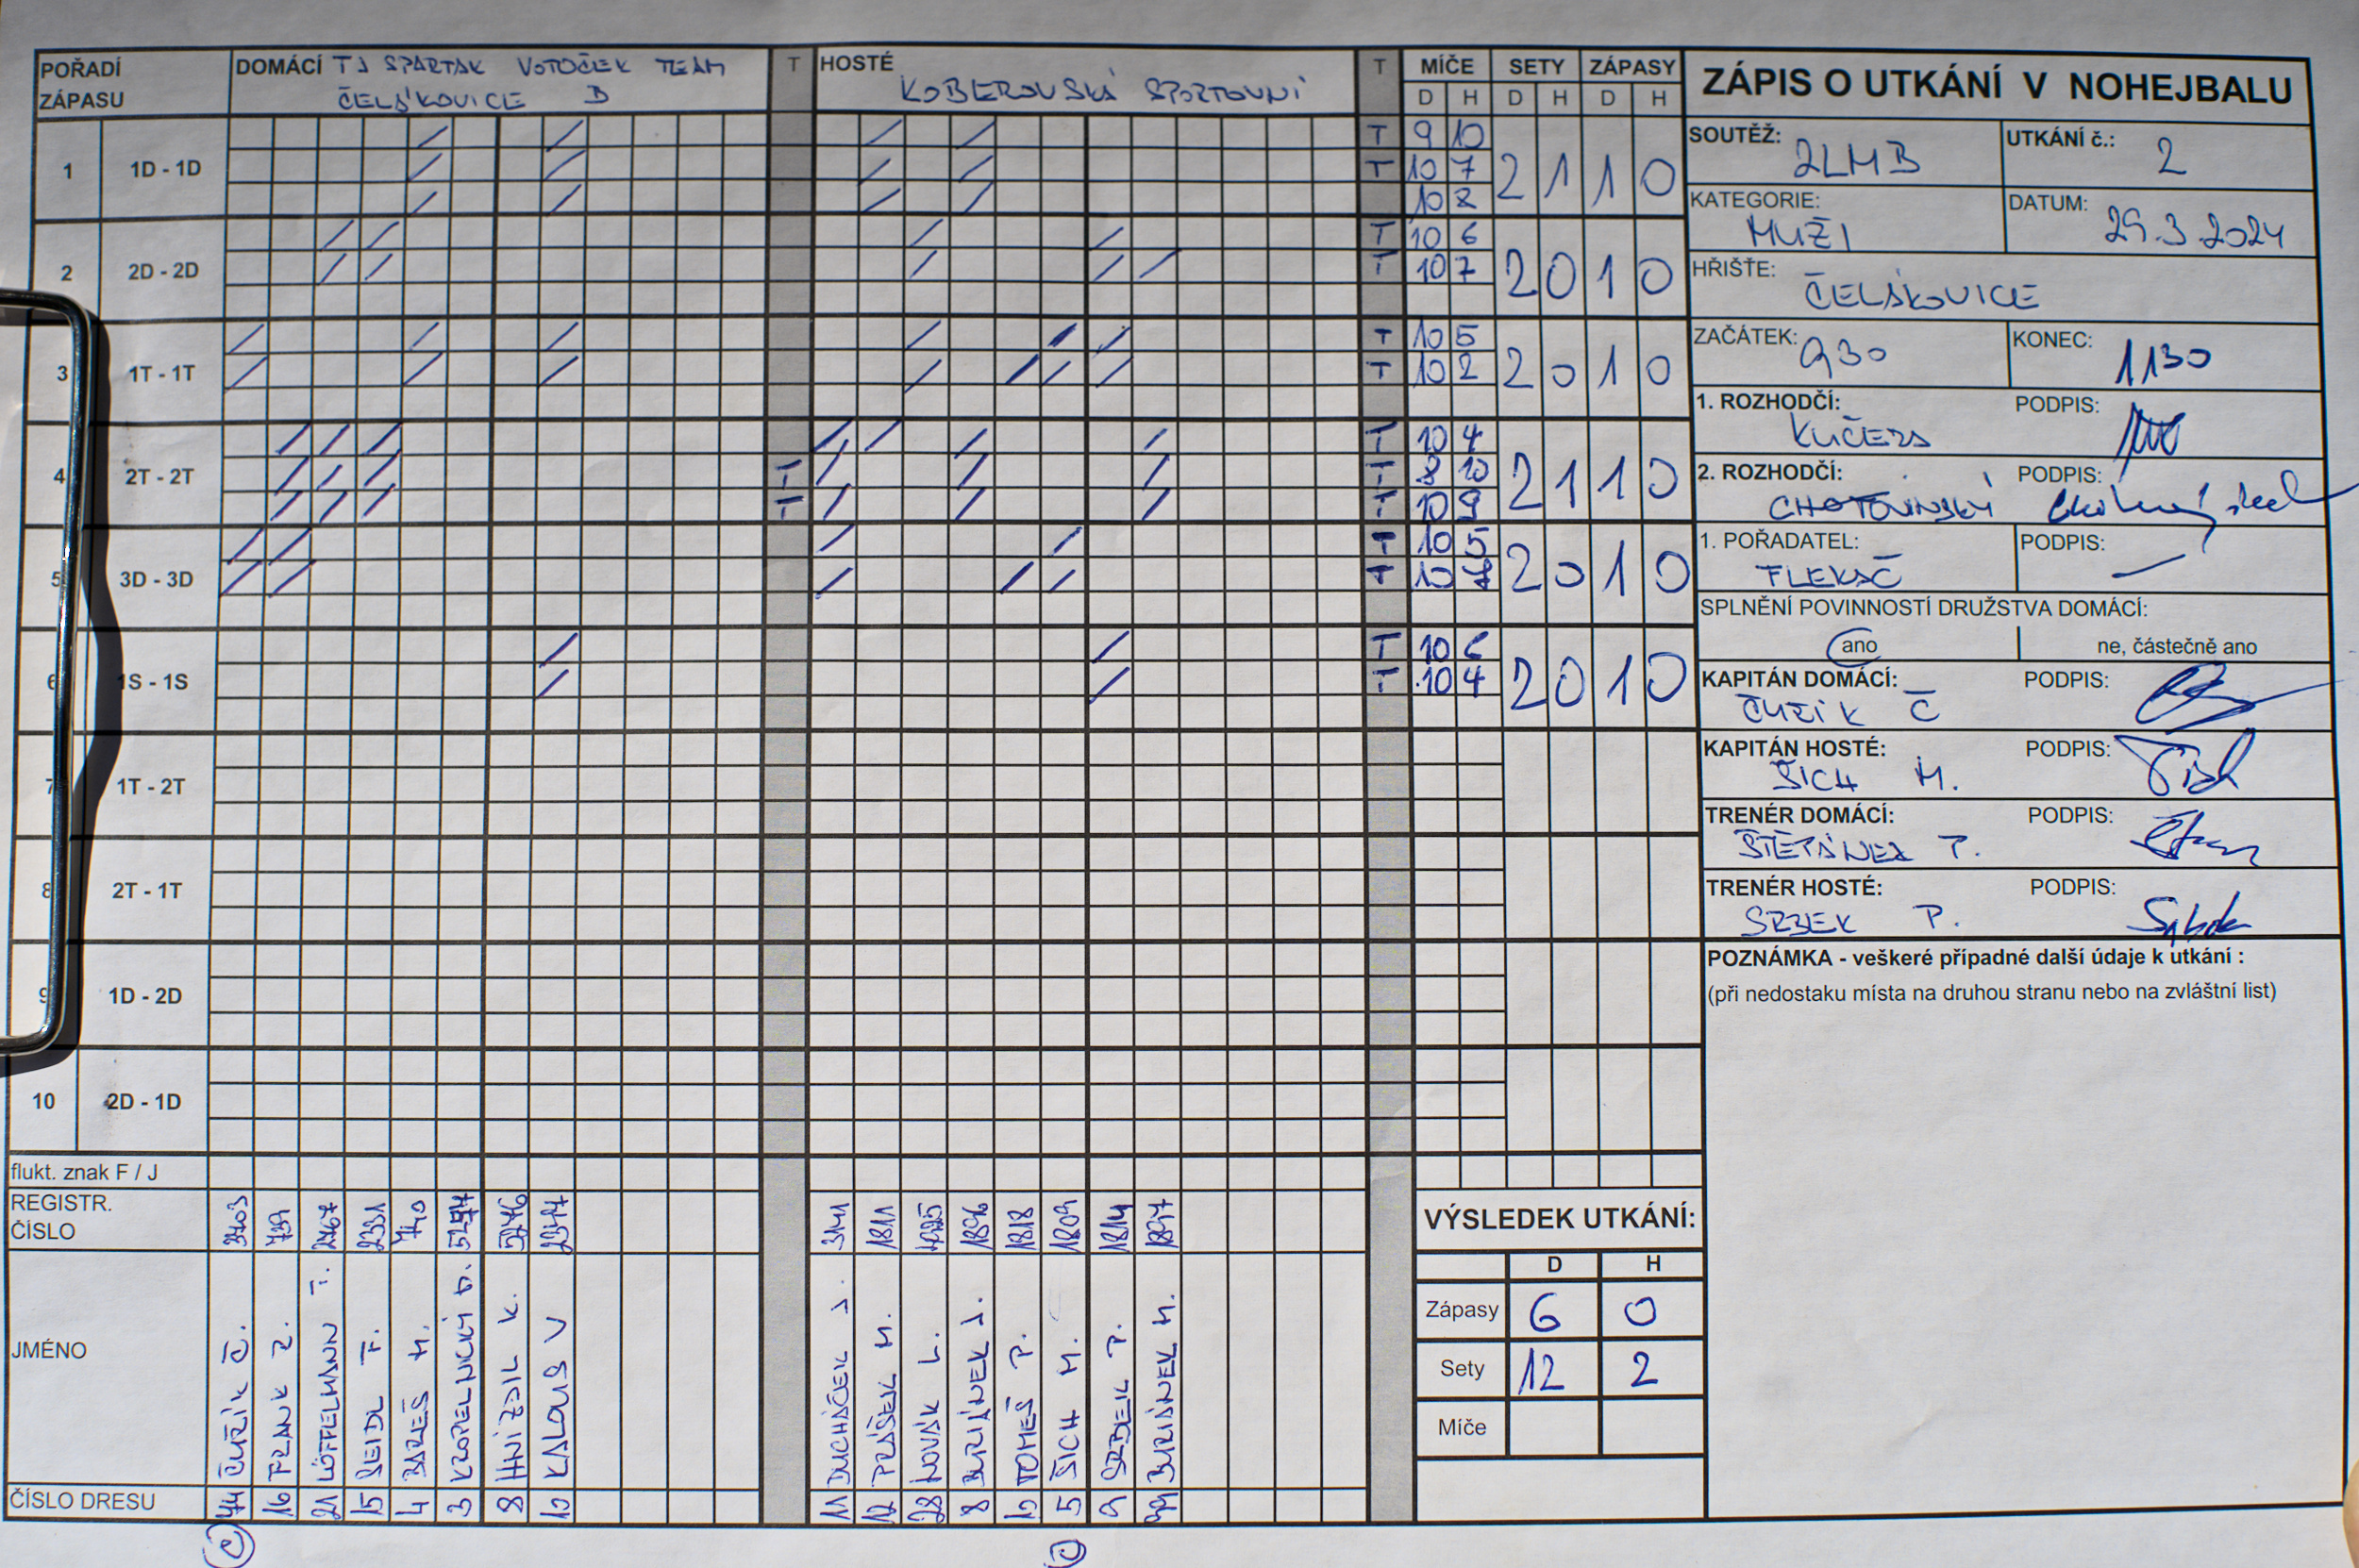 POŘADÍ ZÁPASU
DOMÁCÍ TJ SPARTAK VOTOČEK TEAM
ČELÁKOVICE B
T
HOSTÉ
KOBEROVSKÁ SPORTOVNÍ
T
MÍČE SETY ZÁPASY
D H D H D H
1 1D - 1D
T 9 10
T 10 7 2 1 1 0
10 8
2 2D - 2D
T 10 6
T 10 7 2 0 1 0
3 1T - 1T
T 10 5
T 10 2 2 0 1 0
4 2T - 2T
T 10 4
T T 8 10 2 1 1 0
T T 10 9
5 3D - 3D
T 10 5
T 10 2 0 1 0
6 1S - 1S
T 10 6
T 10 4 2 0 1 0
7 1T - 2T
8 2T - 1T
9 1D - 2D
10 2D - 1D
flukt. znak F / J
REGISTR. ČÍSLO
739 2467 2331 740 5246 2347
3141 1811 1896 1818 1809 1814 1897
JMÉNO
ČUŘÍK Č.
FRANK Z.
LÖFFELMANN T.
SEIDL F.
BAREŠ M.
KROPELNICKÝ D.
HNIZDIL K.
KALOUS V
DUCHÁČEK J.
PRÁŠEK M.
NOVÁK L.
BURIÁNEK J.
TOMEŠ P.
ŠICH M.
SRBEK P.
BURIÁNEK M.
ČÍSLO DRESU
44 16 21 15 4 3 8 10
11 12 28 8 10 5 9 99
C C
ZÁPIS O UTKÁNÍ V NOHEJBALU
SOUTĚŽ: 2LMB
UTKÁNÍ č.: 2
KATEGORIE: MUŽI
DATUM: 29.3.2024
HŘIŠTE: ČELÁKOVICE
ZAČÁTEK: 930
KONEC: 1130
1. ROZHODČÍ: KUČERA
PODPIS:
2. ROZHODČÍ: CHOTOVINSKÝ
PODPIS:
1. POŘADATEL: FLEKAČ
PODPIS:
SPLNĚNÍ POVINNOSTÍ DRUŽSTVA DOMÁCÍ:
ano
ne, částečně ano
KAPITÁN DOMÁCÍ: ČUŘÍK Č
PODPIS:
KAPITÁN HOSTÉ: ŠICH M.
PODPIS:
TRENÉR DOMÁCÍ: ŠTĚPÁNEK P.
PODPIS:
TRENÉR HOSTÉ: SRBEK P.
PODPIS:
POZNÁMKA - veškeré případné další údaje k utkání :
(při nedostaku místa na druhou stranu nebo na zvláštní list)
VÝSLEDEK UTKÁNÍ:
D H
Zápasy 6 0
Sety 12 2
Míče